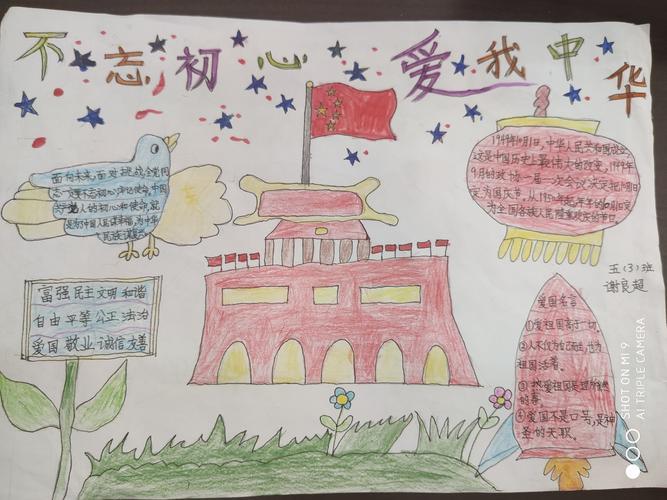 不忘初心 爱我中华
面向未来,面对挑战,全党同
志一定要不忘初心,牢记使命,中国
共产党人的初心和使命,就
是为中国人民谋幸福,为中华
民族谋复兴
1949年10月1日,中华人民共和国成立
这是中国历史上最伟大的改变,1949年
9月的政协一届一次会议决定把10月1日
定为国庆节。从1950年起每年的10月1日定
为全国各族人民隆重欢庆的节日。
五(3)班
谢良超
富强 民主 文明 和谐
自由 平等 公正 法治
爱国 敬业 诚信 友善
爱国名言
①爱祖国高于一切
②人不仅为自己而生,也为
祖国活着。
③热爱祖国是
的
④爱国不是口号,是神
圣的天职。
SHOT ON MI 9
AI TRIPLE CAMERA